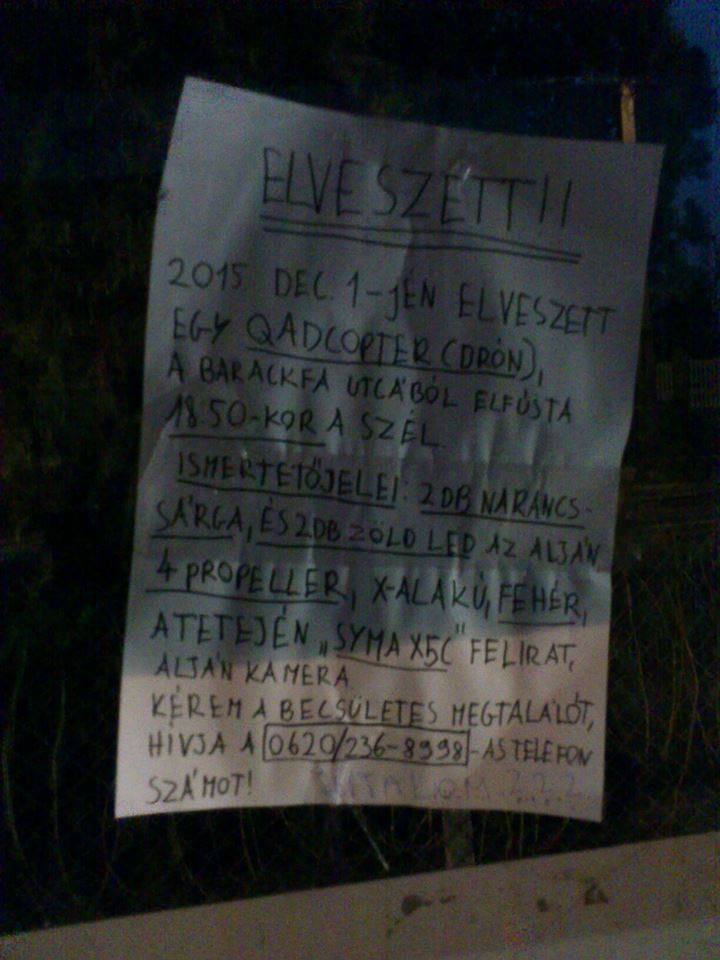 ELVESZETT!!
2015 DEC. 1-JÉN ELVESZETT
EGY QADCOPTER (DRÓN),
A BARACKFA UTCÁBÓL ELFÚJTA
18.50-KOR A SZÉL.
ISMERTETŐJELEI: 2DB NARANCS-
SÁRGA, ÉS 2DB ZÖLD LED AZ ALJÁN
4 PROPELLER, X-ALAKÚ, FEHÉR,
A TETEJÉN „SYMA X5C" FELIRAT,
ALJÁN KAMERA
KÉREM A BECSÜLETES MEGTALÁLÓT,
HÍVJA A 0620/236-8998-AS TELEFON
SZÁMOT!